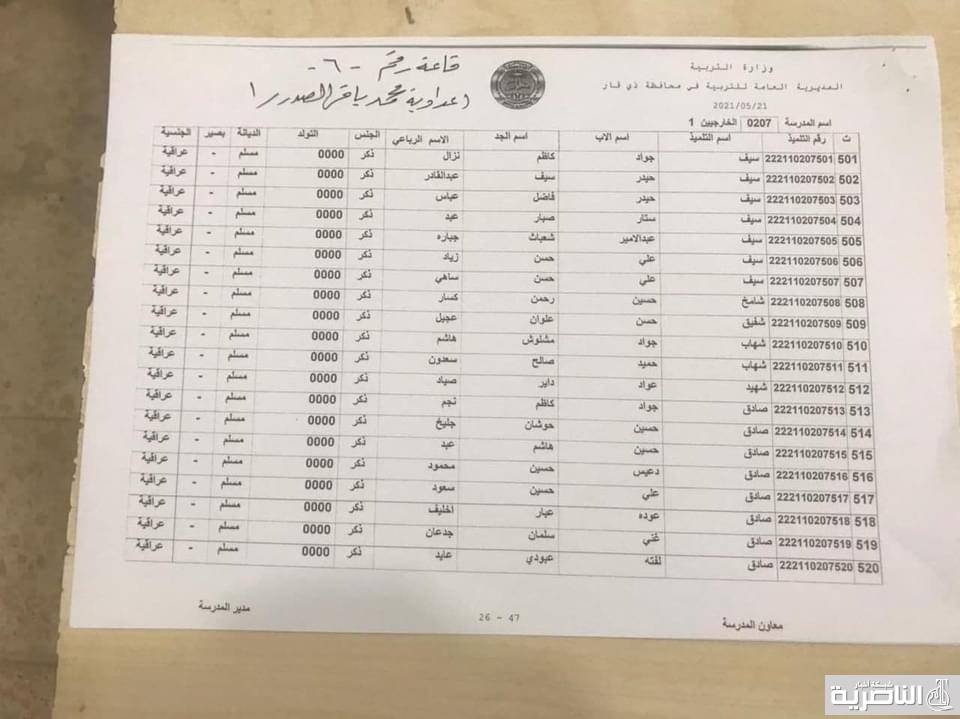 قاعة رقم - ٦ -
اعدادية محمد باقر الصدر / ١
وزارة التربية
المديرية العامة للتربية في محافظة ذي قار
2021/05/21
اسم المدرسة 0207 الخارجيين 1
ت رقم التلميذ اسم التلميذ اسم الاب اسم الجد الاسم الرباعي الجنس التولد الديانة بصير الجنسية
501 222110207501 سيف جواد كاظم نزال ذكر 0000 مسلم - عراقية
502 222110207502 سيف حيدر سيف عبدالقادر ذكر 0000 مسلم - عراقية
503 222110207503 سيف حيدر فاضل عباس ذكر 0000 مسلم - عراقية
504 222110207504 سيف ستار صبار عبد ذكر 0000 مسلم - عراقية
505 222110207505 سيف عبدالامير شعباث جباره ذكر 0000 مسلم - عراقية
506 222110207506 سيف علي حسن زياد ذكر 0000 مسلم - عراقية
507 222110207507 سيف علي حسن ساهي ذكر 0000 مسلم - عراقية
508 222110207508 شامخ حسين رحمن كسار ذكر 0000 مسلم - عراقية
509 222110207509 شفيق حسن علوان عجيل ذكر 0000 مسلم - عراقية
510 222110207510 شهاب جواد مشلوش هاشم ذكر 0000 مسلم - عراقية
511 222110207511 شهاب حميد صالح سعدون ذكر 0000 مسلم - عراقية
512 222110207512 شهيد عواد داير صياد ذكر 0000 مسلم - عراقية
513 222110207513 صادق جواد كاظم نجم ذكر 0000 مسلم - عراقية
514 222110207514 صادق حسين حوشان جليخ ذكر 0000 مسلم - عراقية
515 222110207515 صادق حسين هاشم عبد ذكر 0000 مسلم - عراقية
516 222110207516 صادق دعيس حسين محمود ذكر 0000 مسلم - عراقية
517 222110207517 صادق علي حسين سعود ذكر 0000 مسلم - عراقية
518 222110207518 صادق عوده عبار اخليف ذكر 0000 مسلم - عراقية
519 222110207519 صادق غني سلمان جدعان ذكر 0000 مسلم - عراقية
520 222110207520 صادق لفته عبودي عايد ذكر 0000 مسلم - عراقية
معاون المدرسة
26 - 47
مدير المدرسة
شبكة أخبار
الناصرية